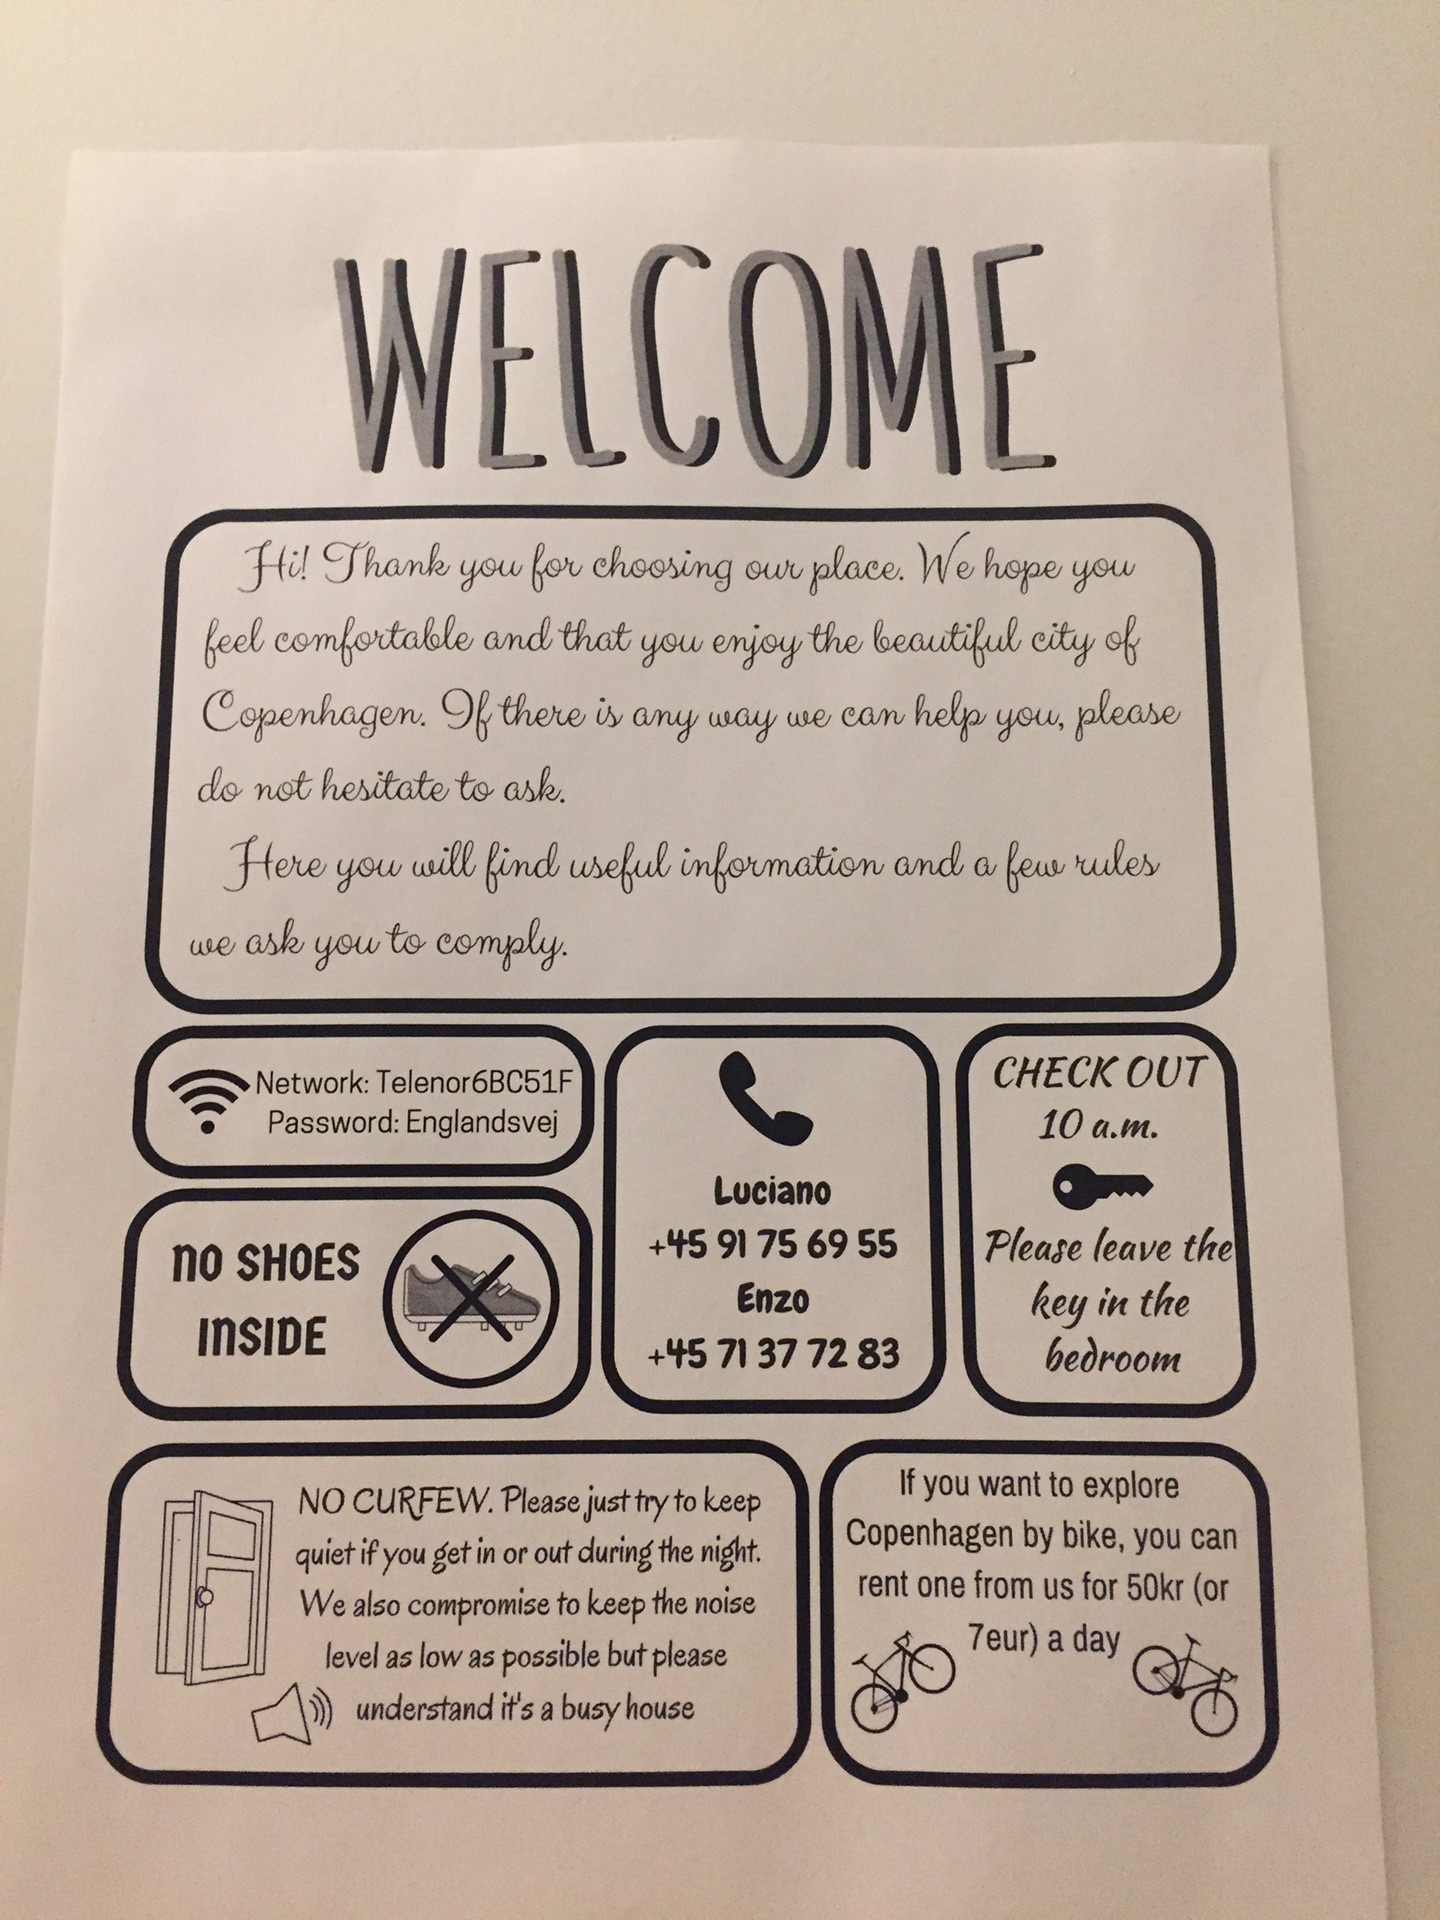 WELCOME
Hi! Thank you for choosing our place. We hope you
feel comfortable and that you enjoy the beautiful city of
Copenhagen. If there is any way we can help you, please
do not hesitate to ask.
Here you will find useful information and a few rules
we ask you to comply.
Network: Telenor6BC51F
Password: Englandsvej
NO SHOES
INSIDE
Luciano
+45 91 75 69 55
Enzo
+45 71 37 72 83
CHECK OUT
10 a.m.
Please leave the
key in the
bedroom
NO CURFEW. Please just try to keep
quiet if you get in or out during the night.
We also compromise to keep the noise
level as low as possible but please
understand it's a busy house
If you want to explore
Copenhagen by bike, you can
rent one from us for 50kr (or
7eur) a day